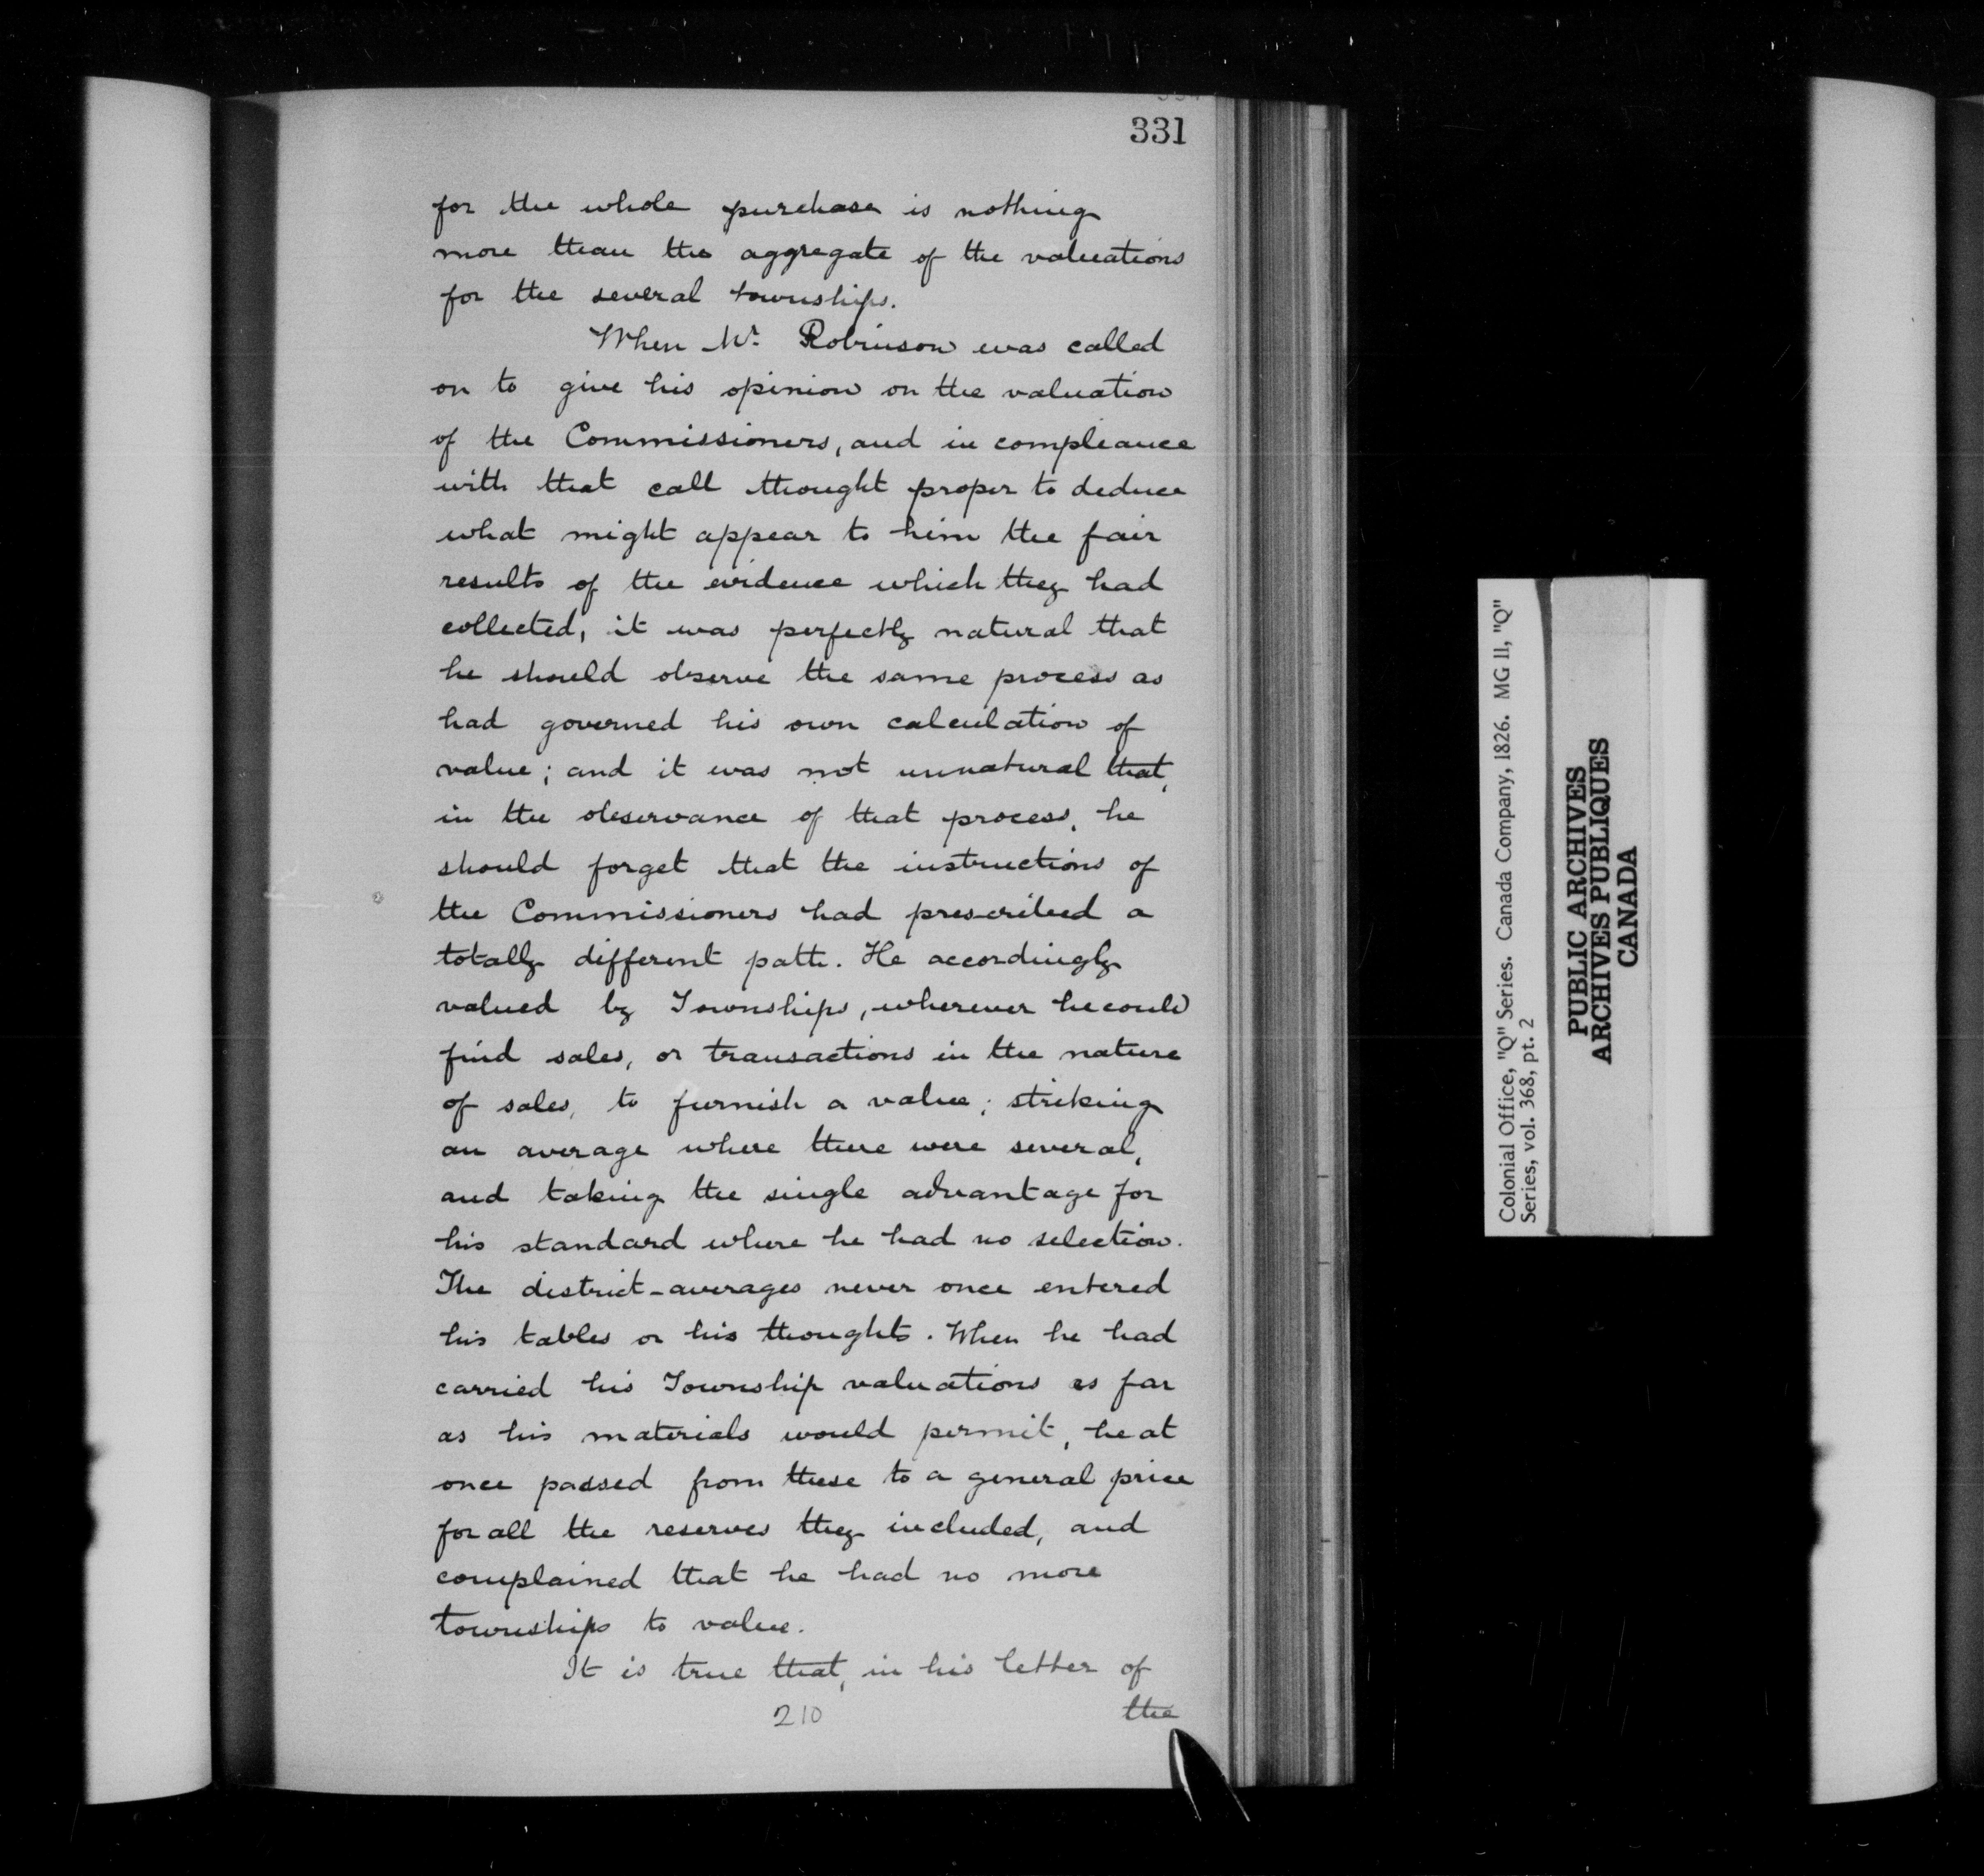 331
for the whole purchase is nothing
more than the aggregate of the valuations
for the several townships.
When Mr. Robinson was called
on to give his opinion on the valuation
of the Commissioners, and in compliance
with that call thought proper to deduce
what might appear to him the fair
results of the evidence which they had
collected, it was perfectly natural that
he should observe the same process as
had governed his own calculation of
value; and it was not unnatural that,
in the observance of that process, he
should forget that the instructions of
the Commissioners had prescribed a
totally different path. He accordingly
valued by Townships, wherever he could
find sales, or transactions in the nature
of sales, to furnish a value; striking
an average where there were several,
and taking the single advantage for
his standard where he had no selection.
The district-averages never once entered
his tables or his thoughts. When he had
carried his Township valuations as far
as his materials would permit, he at
once passed from these to a general price
for all the reserves they included, and
complained that he had no more
townships to value.
It is true that, in his letter of
210 the
Colonial Office, "Q" Series. Canada Company, 1826. MG 11, "Q"
Series, vol. 368, pt. 2
PUBLIC ARCHIVES
ARCHIVES PUBLIQUES
CANADA